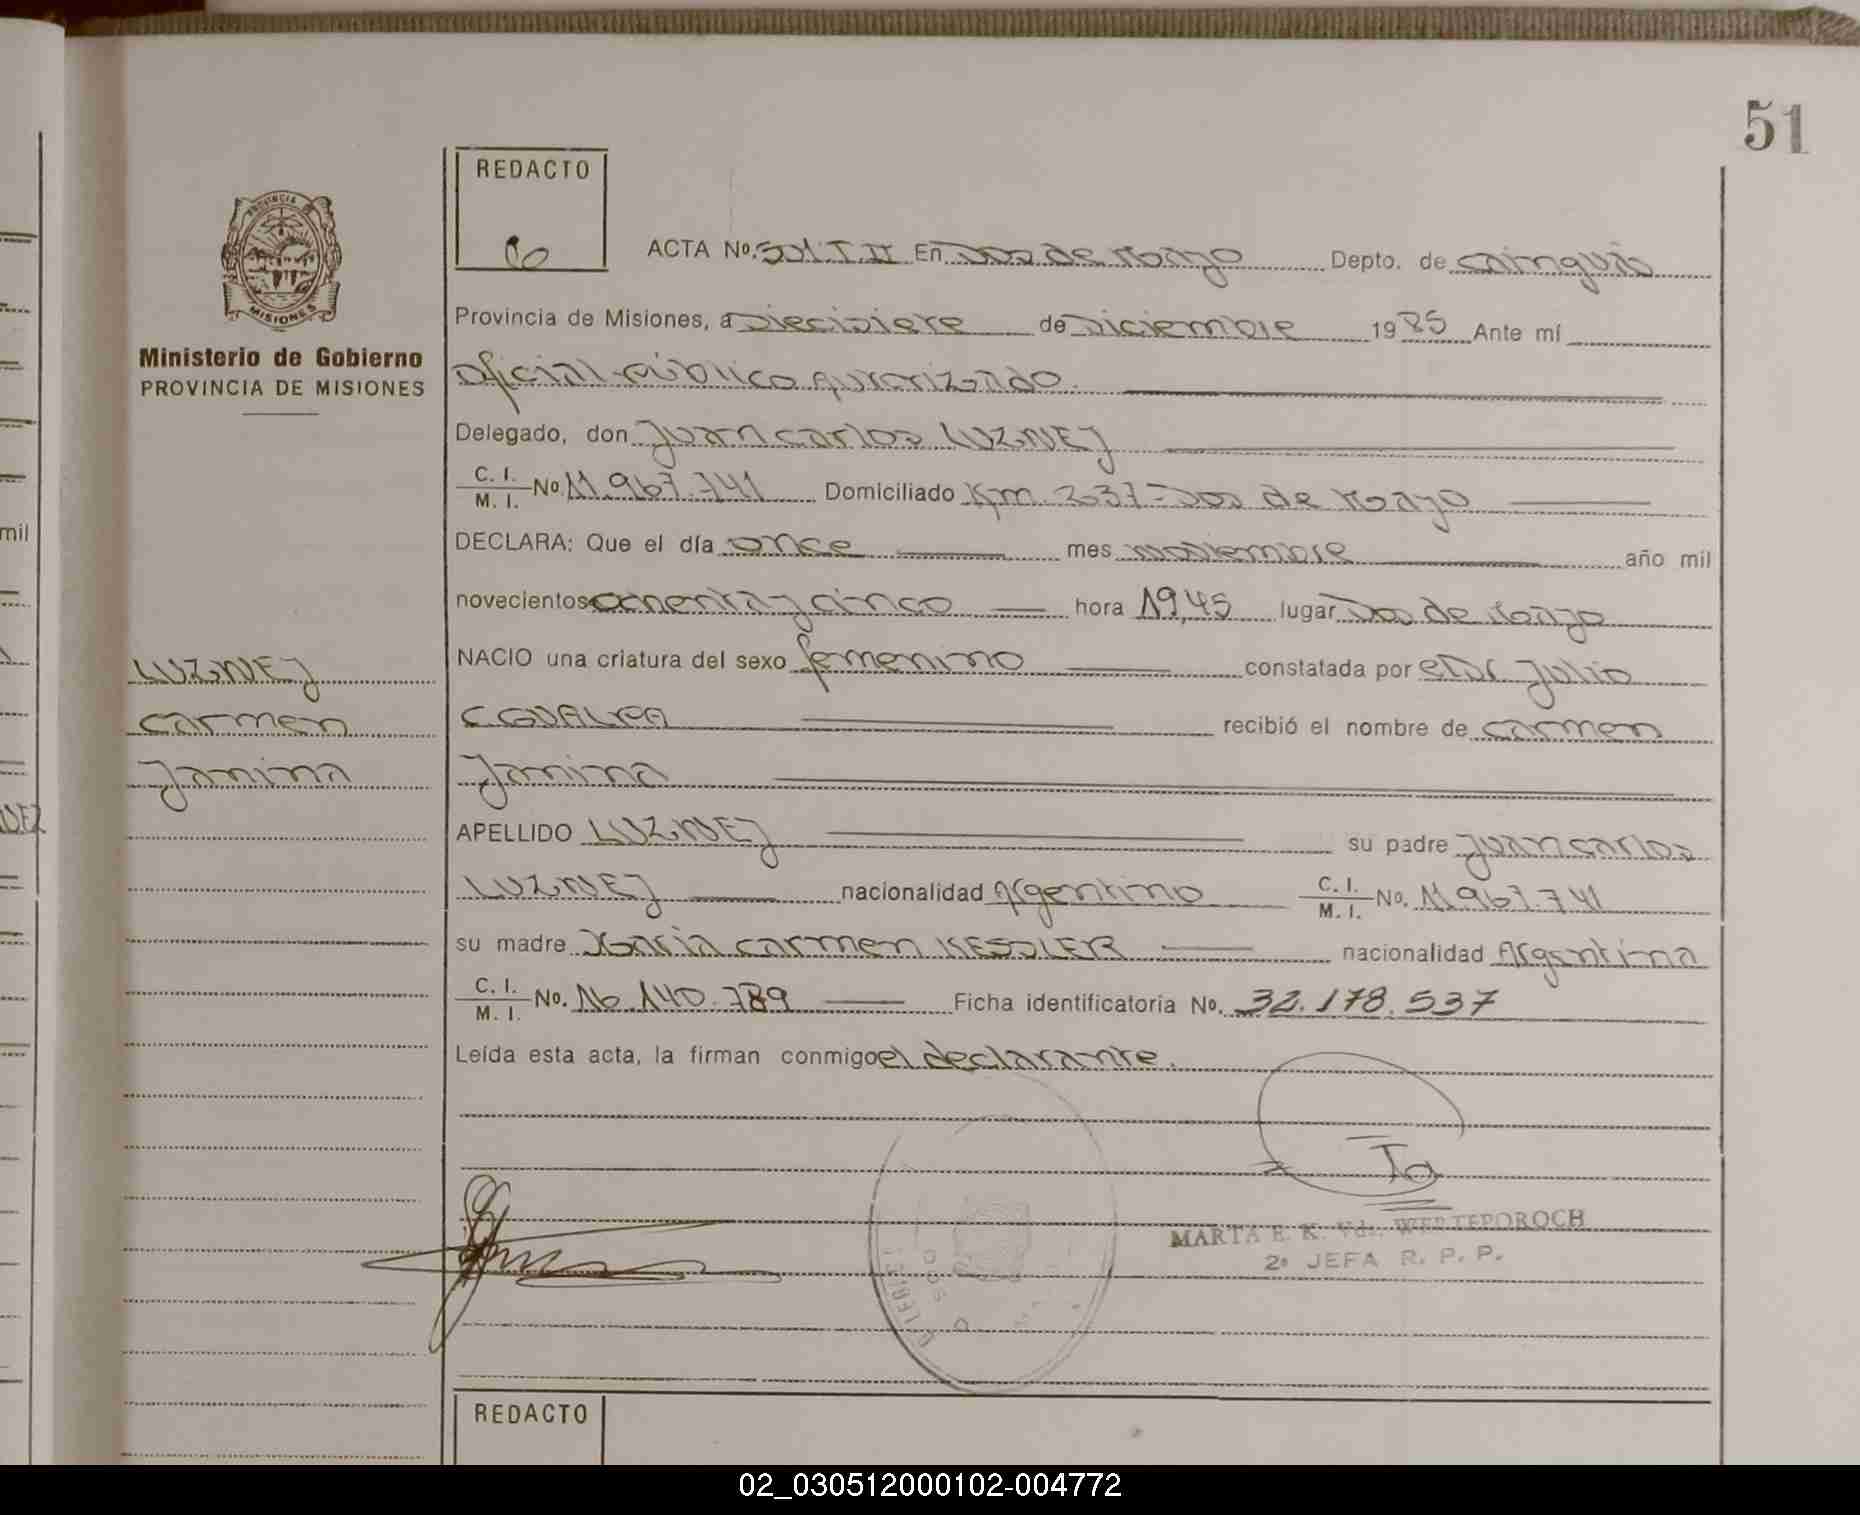 51
REDACTO
ACTA No. 501. T II En Dos de Mayo Depto. de Cainguás
PROVINCIA
MISIONES
Provincia de Misiones, a Diecisiete de Diciembre 1985 Ante mí
Ministerio de Gobierno
PROVINCIA DE MISIONES
Oficial Público Autorizado.
Delegado, don Juan Carlos LUZNEJ
C. I.
M. I. No. 11.967.741 Domiciliado Km. 237-Dos de Mayo
DECLARA: Que el día once mes noviembre año mil
novecientos ochenta y cinco hora 19,45 lugar Dos de Mayo
NACIO una criatura del sexo femenino constatada por el Dr Julio
C GUALPA recibió el nombre de Carmen
Janina
LUZNEJ
Carmen
Janina
APELLIDO LUZNEJ su padre Juan Carlos
LUZNEJ nacionalidad Argentino C. I.
M. I. No. 11.967.741
su madre Maria Carmen KESSLER nacionalidad Argentina
C. I.
M. I. No. 16.140.789 Ficha identificatoria No. 32.178.537
Leída esta acta, la firman conmigo el declarante.
MARTA E. K. Vda. WERTEPOROCH
2º JEFA R. P. P.
REDACTO
mil
02_030512000102-004772